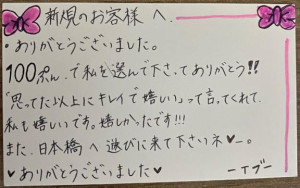 新規のお客様へ
・ありがとうございました。
100ぽん、で私を選んで下さってありがとう!!
「思ってた以上にキレイで嬉しい」って言ってくれて、
私も嬉しいです。嬉しかったです!!!
また、日本橋へ遊びに来て下さいネ♥ー。
♥ありがとうございました♥
ーイブー